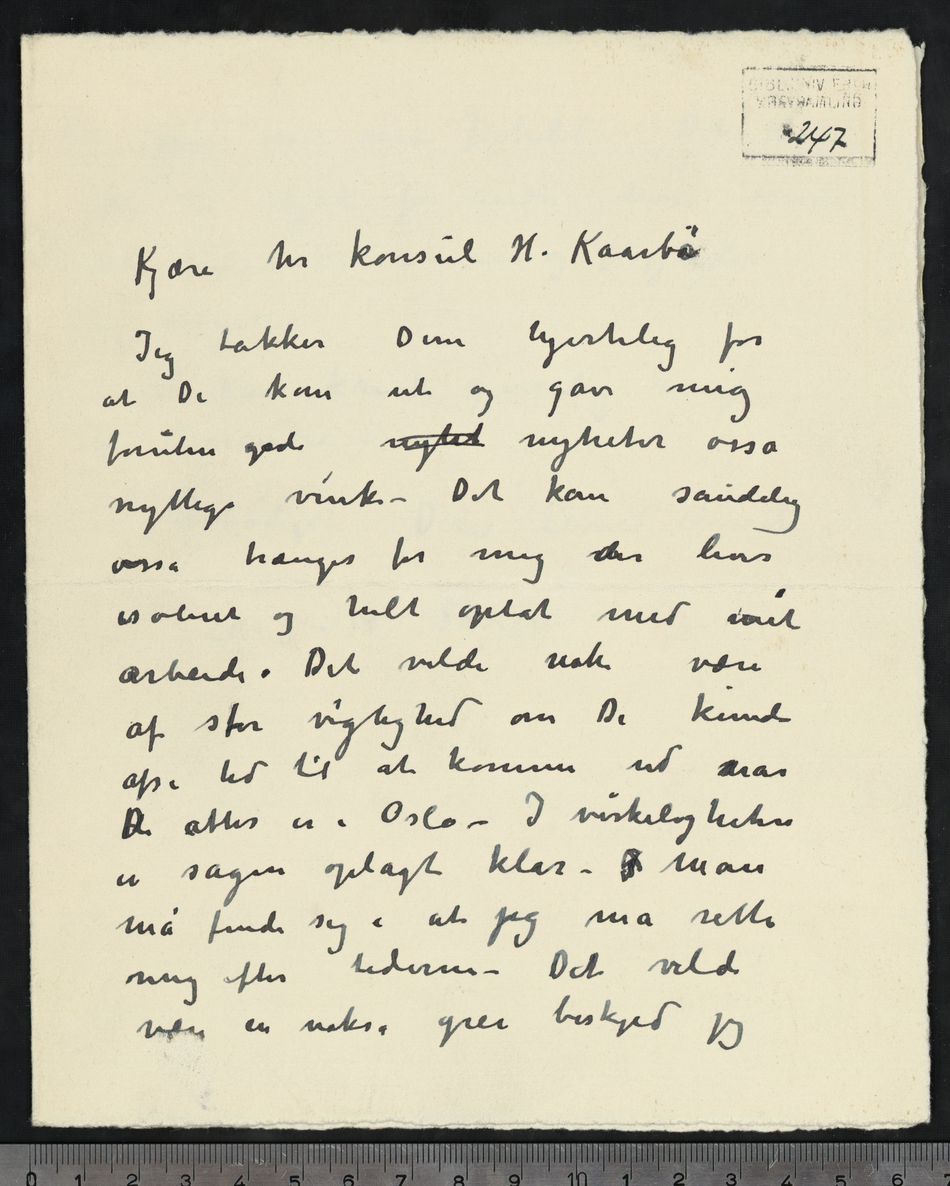 247
Kjære hr konsul H. Kaarbö
Jeg takker Dem hjertelig for
at De kom ut og gave mig
foruten gode nyheter osså
nyttige vink – Det kan sandelig
osså trænges for mig der lever
isoleret og helt optat med mit
arbeide. Det vilde nok være
af stor vigtighed om De kunde
afse tid til at komme ud naar
De atter er i Oslo – I virkeligheten
er sagen oplagt klar – Man
må finde sig i at jeg må rette
mig efter tiderne – Det vilde
være en nokså grei beskjed jeg